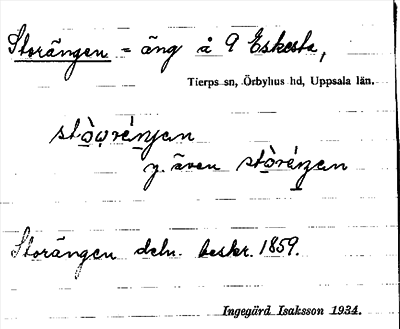 Storängen = äng å 9 Eskesta,
Tierps sn, Örbyhus hd, Uppsala län.
stò̱ọréṉjan
y. även stò̱réṉjan
Storängen deln. beskr. 1859.
Ingegärd Isaksson 1934.